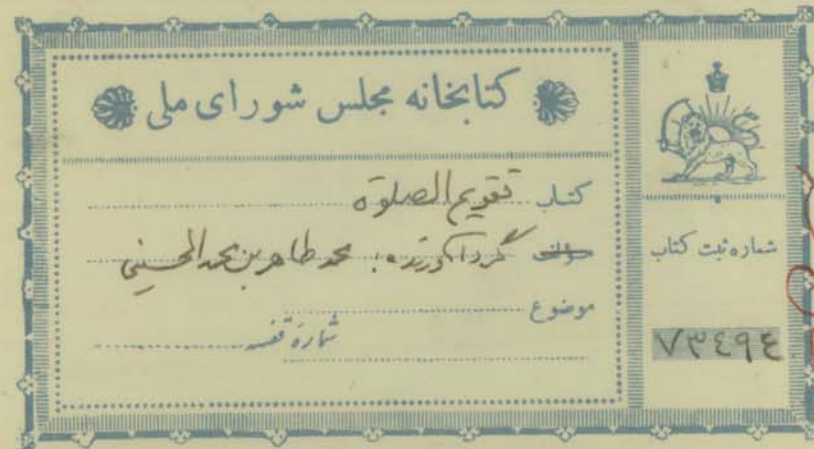 کتابخانه مجلس شورای ملی
کتاب تقویم الصلوة
مؤلف گردآورنده: محمد طاهر بن محمد الحسینی
موضوع
شماره قفسه
شماره ثبت کتاب
۷۳۴۹۴